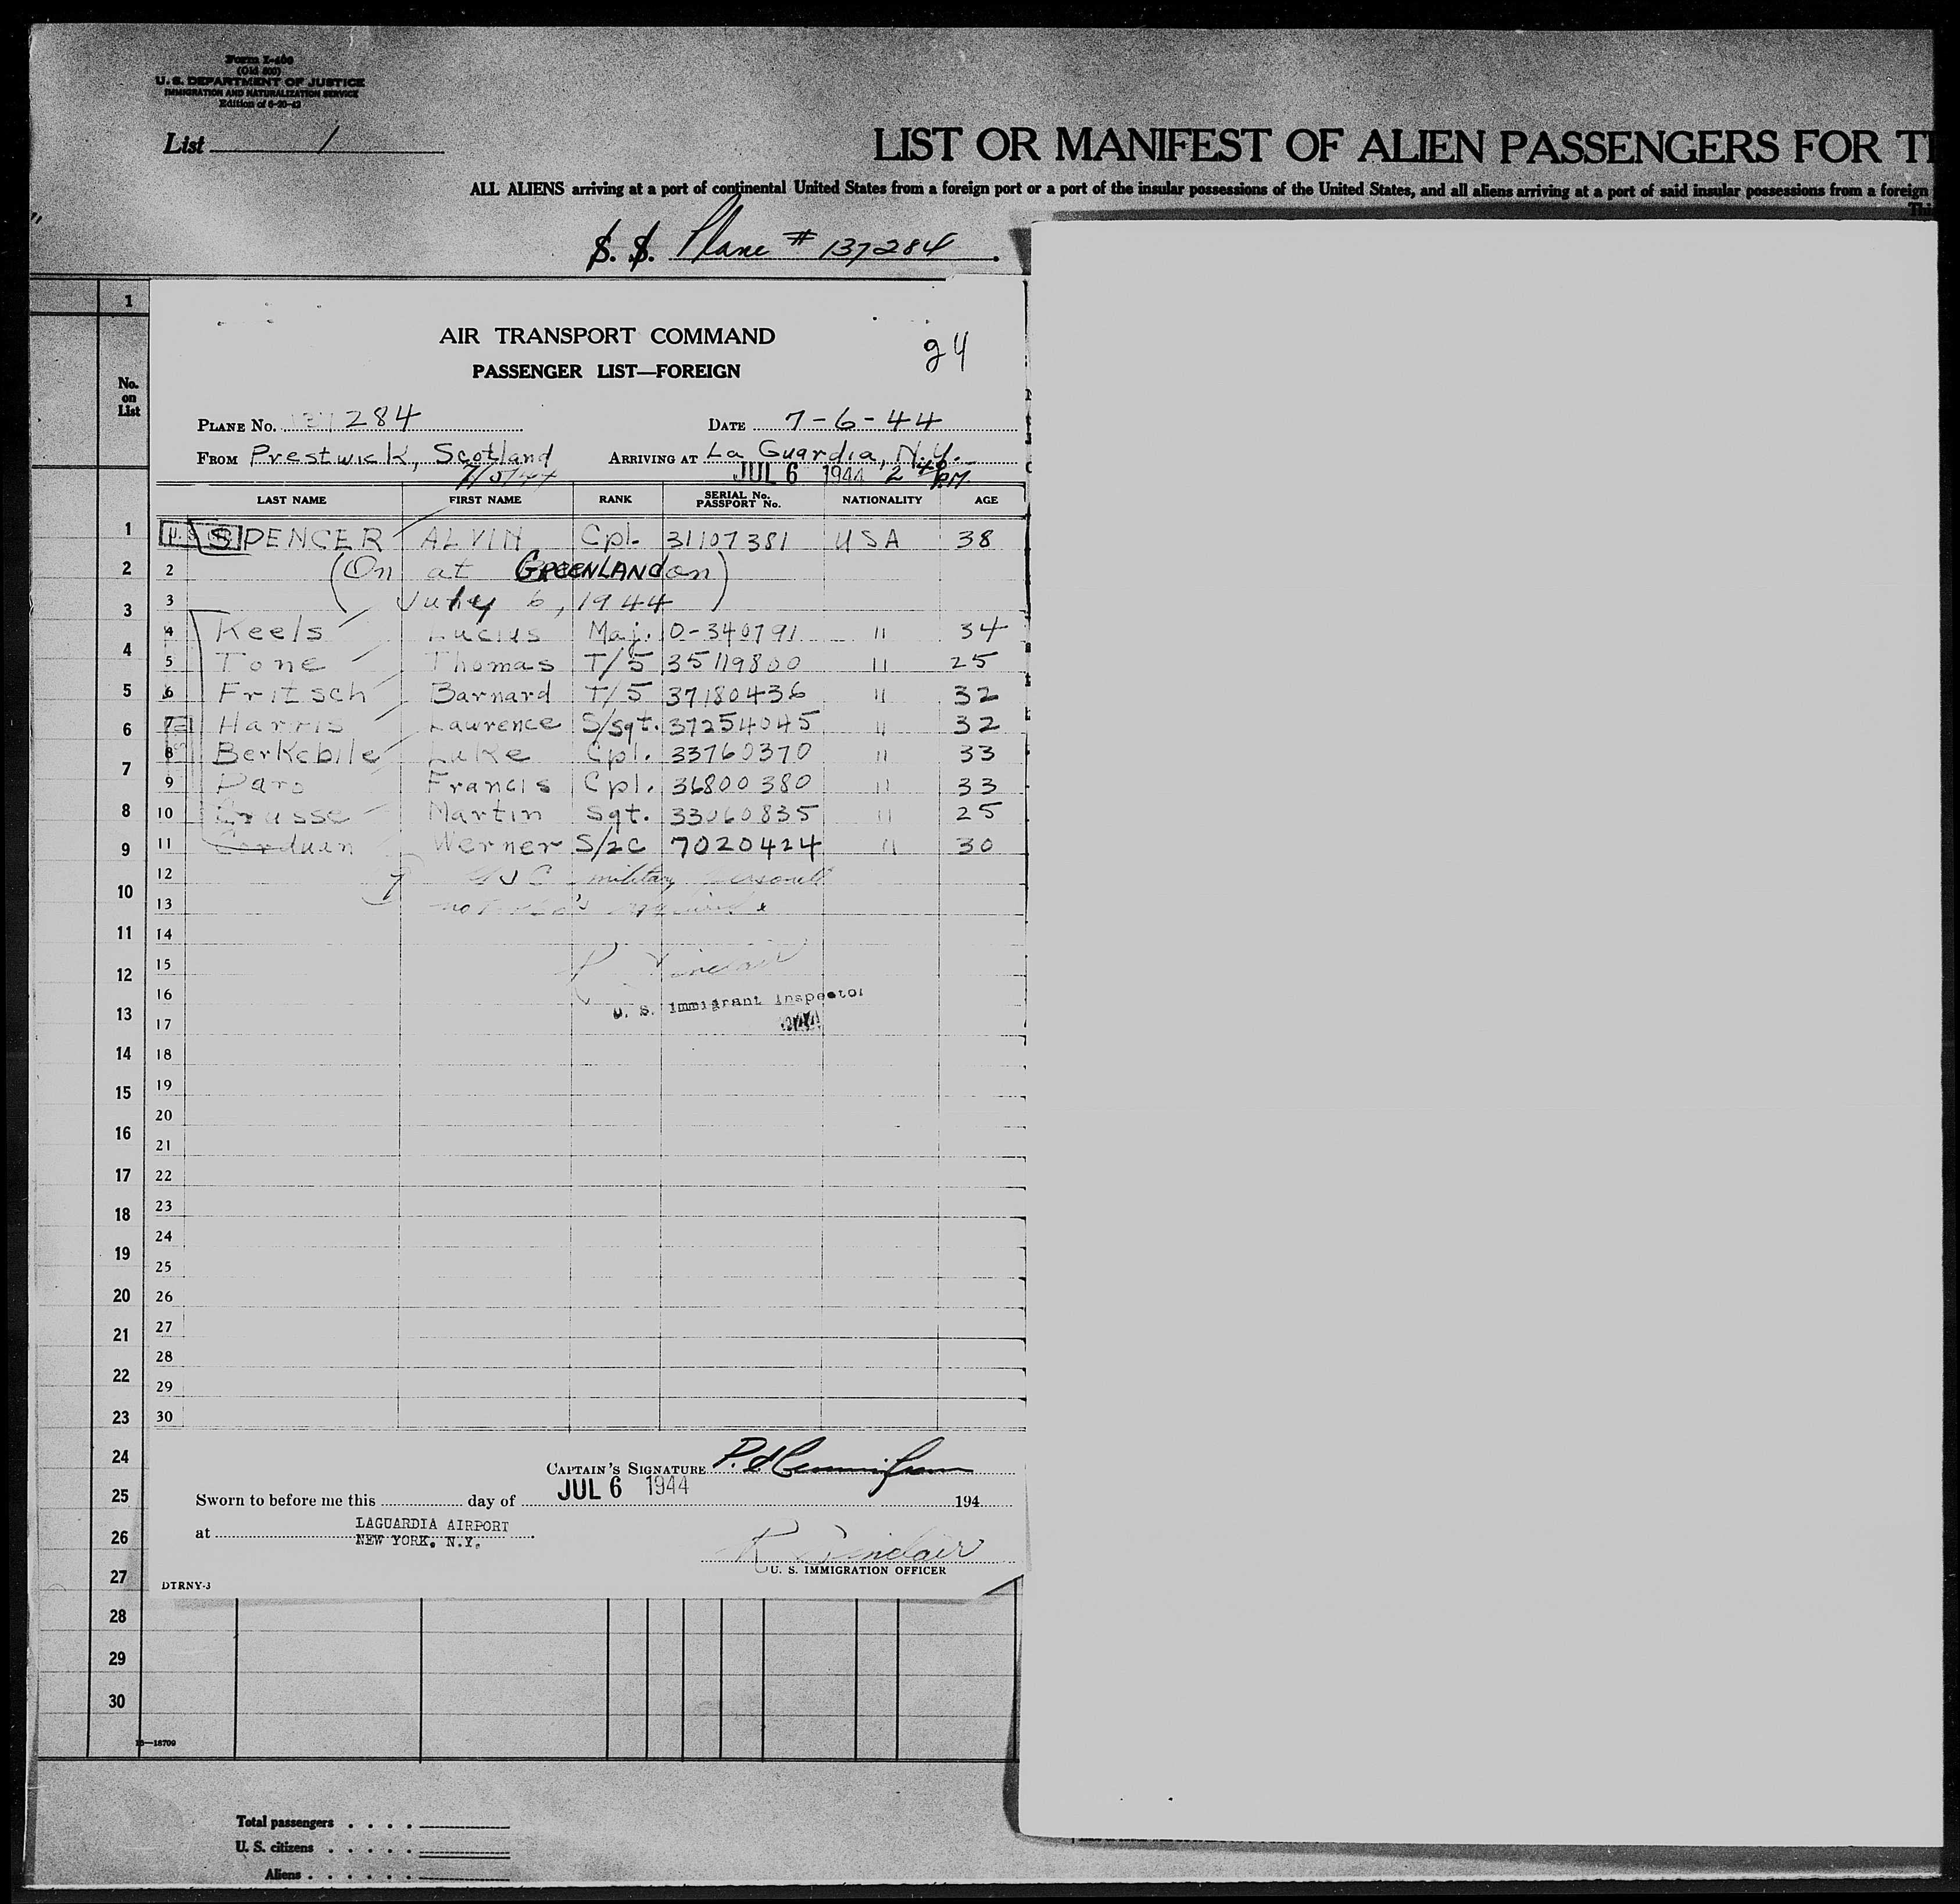 Form I-466
(Old 500)
U. S. DEPARTMENT OF JUSTICE
IMMIGRATION AND NATURALIZATION SERVICE
Edition of 6-20-43
List 1
LIST OR MANIFEST OF ALIEN PASSENGERS FOR TH
ALL ALIENS arriving at a port of continental United States from a foreign port or a port of the insular possessions of the United States, and all aliens arriving at a port of said insular possessions from a foreign
Thi
S. S. Plane # 137284
1
No. on List
AIR TRANSPORT COMMAND
PASSENGER LIST—FOREIGN
94
PLANE No. 137284 DATE 7-6-44
FROM Prestwick, Scotland ARRIVING AT La Guardia, N.Y.
7/5/44 JUL 6 1944 2 40 PM
LAST NAME FIRST NAME RANK SERIAL No. PASSPORT No. NATIONALITY AGE
1 SPENCER ALVIN Cpl. 31107381 USA 38
2 (On at GREENLAND on
3 July 6, 1944)
4 Keels Lucius Maj. O-340791 " 34
5 Tone Thomas T/5 35119800 " 25
6 Fritsch Barnard T/5 37180436 " 32
7 Harris Lawrence S/Sgt. 37254045 " 32
8 Berkebile Luke Cpl. 33760370 " 33
9 Daro Francis Cpl. 36800380 " 33
10 Crusse Martin Sgt. 33060835 " 25
11 Corduan Werner S/2C 7020424 " 30
12 military personell
13 no required
14
15 R Sinclair
16 U. S. Immigrant Inspector
17
18
19
20
21
22
23
24
25
26
27
28
29
30
CAPTAIN'S SIGNATURE
Sworn to before me this day of JUL 6 1944 194
at LAGUARDIA AIRPORT
NEW YORK, N.Y.
R Sinclair
U. S. IMMIGRATION OFFICER
DTRNY-3
1
2
3
4
5
6
7
8
9
10
11
12
13
14
15
16
17
18
19
20
21
22
23
24
25
26
27
28
29
30
16—18709
Total passengers
U. S. citizens
Aliens